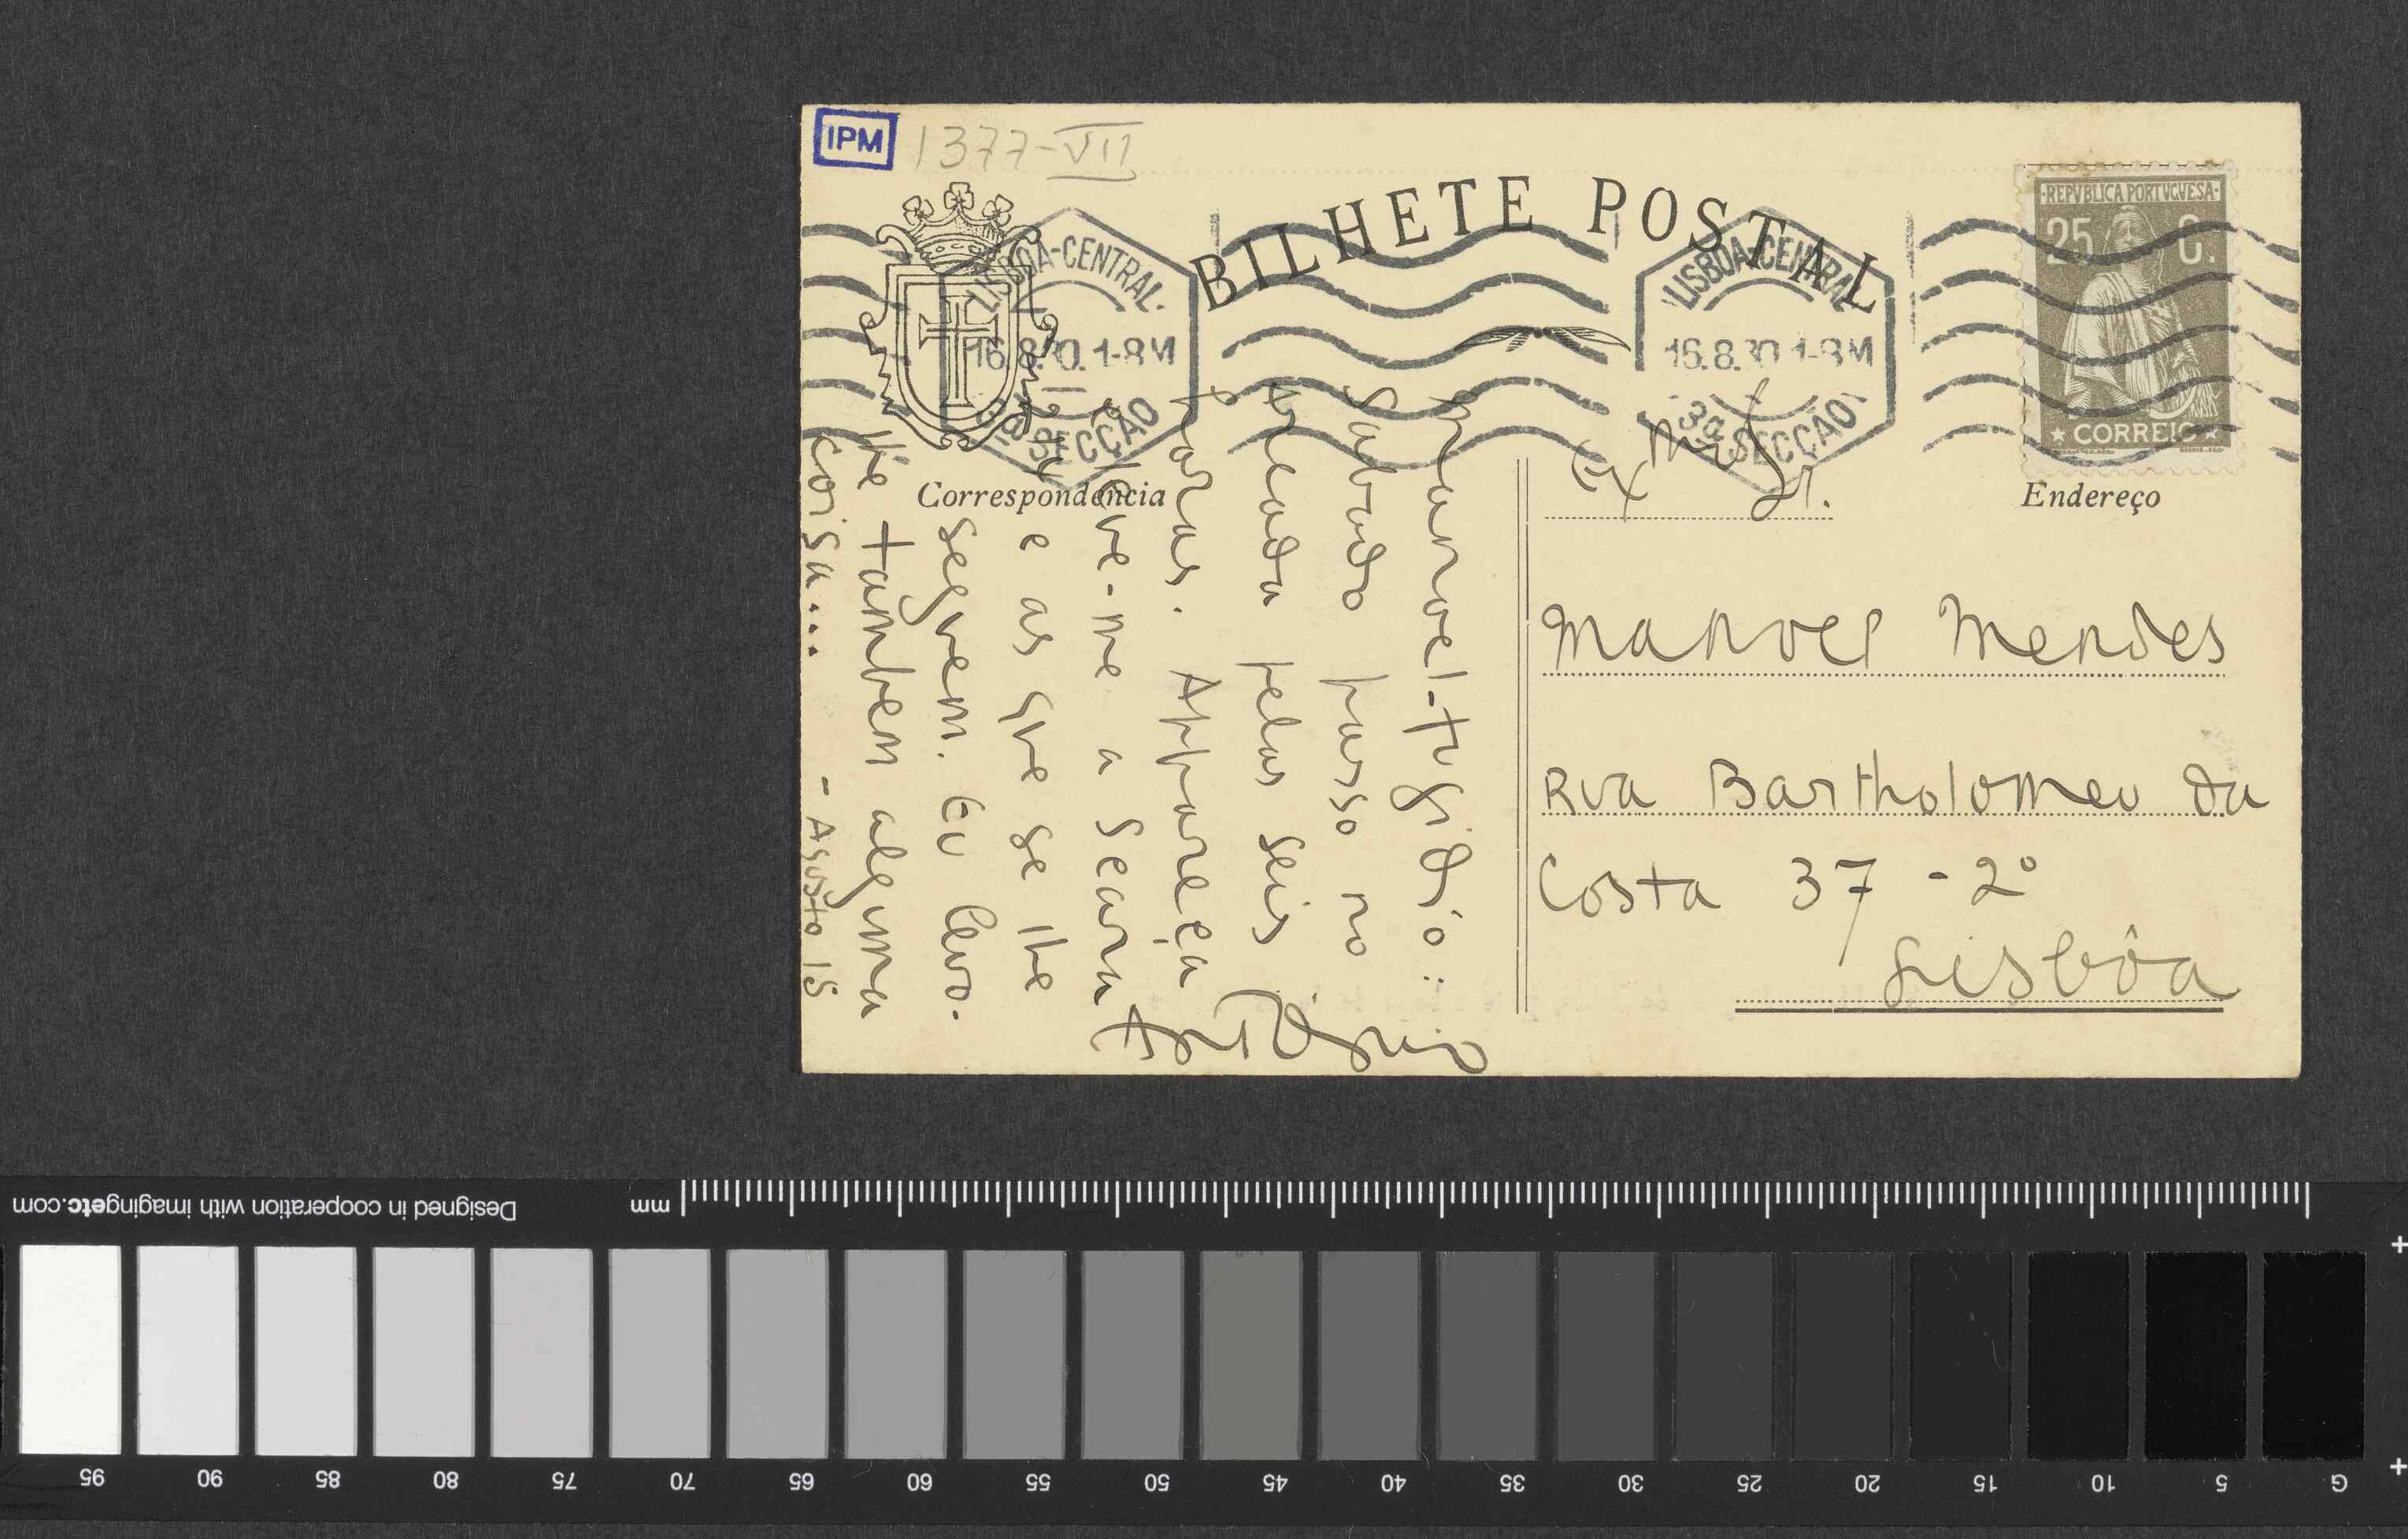 IPM 1377-VII
BILHETE POSTAL
LISBOA-CENTRAL
16.8.30.1-8M
3ª SECÇÃO
LISBOA-CENTRAL
16.8.30 1-8M
3ª SECÇÃO
·REPVBLICA PORTVGVESA·
25 C.
★ CORREIO ★
Correspondencia
Endereço
Exmo Sr.
Manoel Mendes
Rua Bartholomeu da
Costa 37 - 2º
Lisbôa
Manoel-tugidio:
Sabado passo no
pelas seis
horas. Appareça
e leve-me a Seara
e as que se lhe
seguem. Eu levo-
lhe tambem alguma
coisa...
- Agosto 15
Antonio
Designed in cooperation with imagingetc.com
mm
95 90 85 80 75 70 65 60 55 50 45 40 35 30 25 20 15 10 5 G